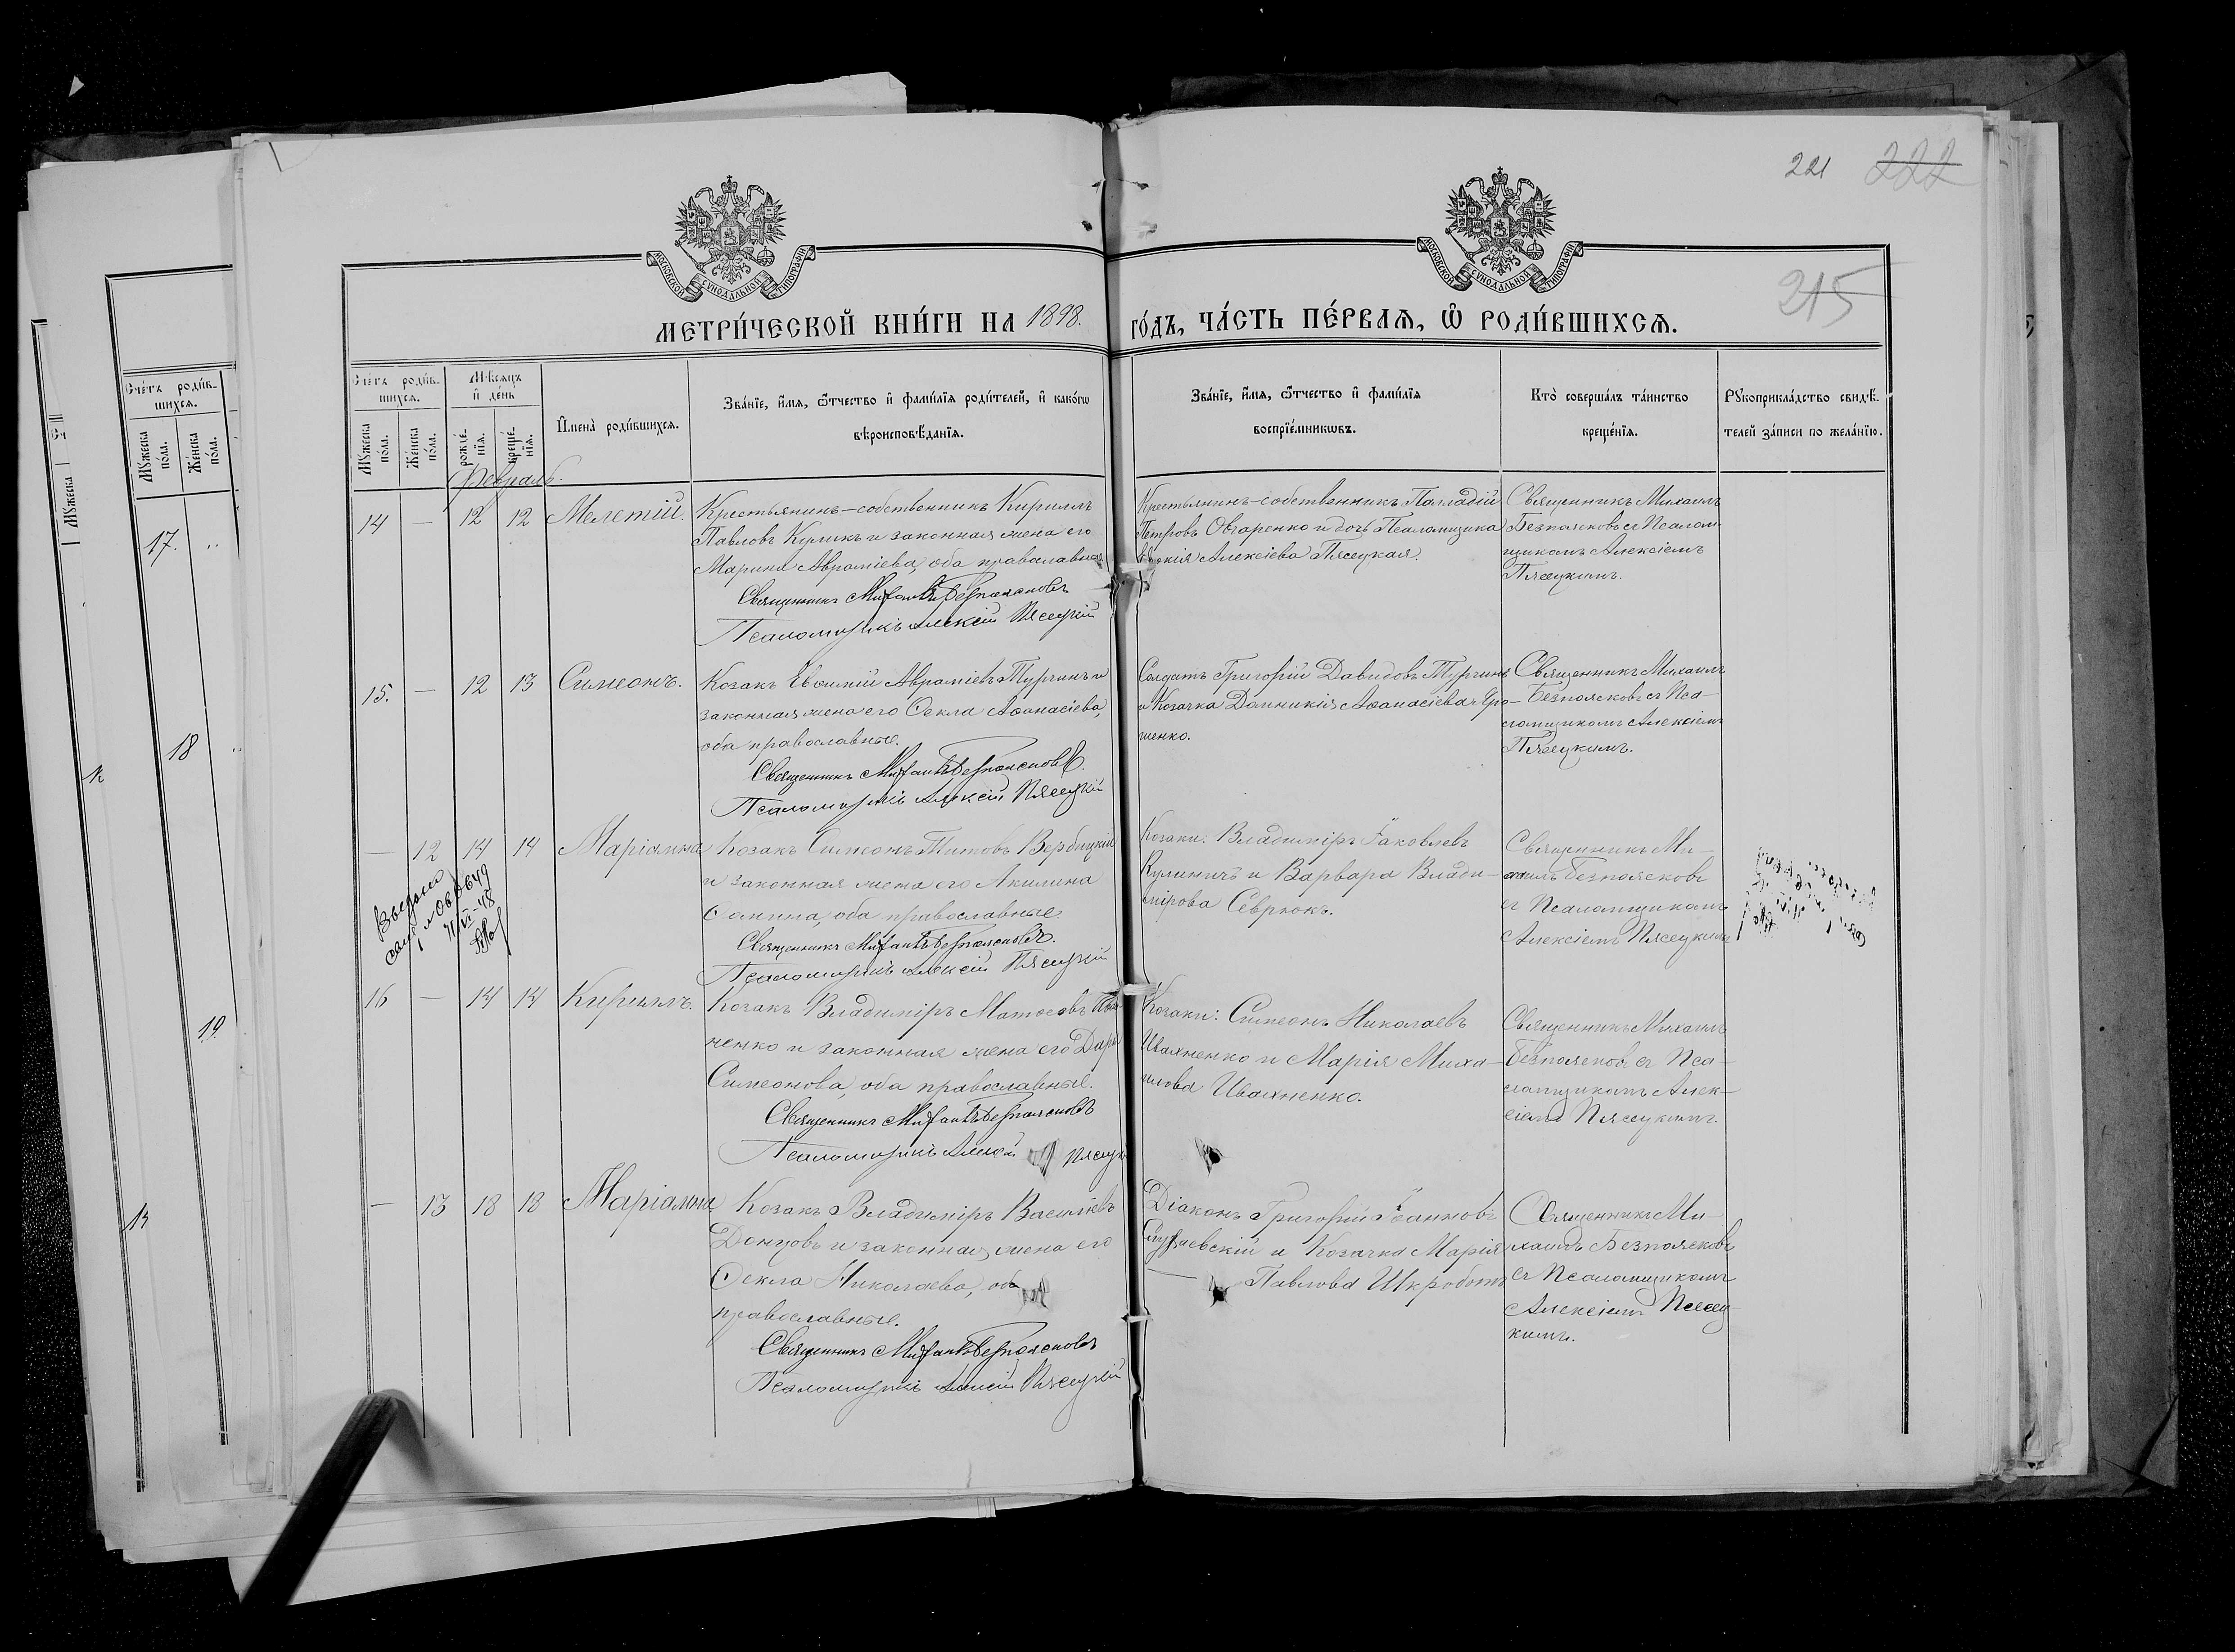 221 222
215
МОСКОВСКОЙ СѴНОДАЛЬНОЙ ТИПОГРАФІИ
МОСКОВСКОЙ СѴНОДАЛЬНОЙ ТИПОГРАФІИ
МЕТРИ́ЧЕСКОЙ КНИ́ГИ НА 1898.
ГО́ДЪ, ЧА́СТЬ ПЕ́РВАЯ, Ѽ РОДИ́ВШИХСЯ.
Сче́тъ роди́в-
шихся.
Мꙋжеска
по́ла.
Же́нска
по́ла.
Мѣсяцъ
и҆ де́нь
рожде́-
нїя.
креще́-
нїя.
И҆мена̀ роди́вшихся.
Зва́нїе, и҆́мя, ѻ҆́тчество и҆ фами́лїя роди́телей, и҆ како́гѡ
вѣроисповѣ́данїя.
Зва́нїе, и҆́мя, ѻ҆́тчество и҆ фами́лїя
воспрїе́мникѡвъ.
Кто̀ соверша́лъ та́инство
креще́нїя.
Рꙋкоприкла́дство свидѣ́-
телей за́писи по жела́нїю.
Февраль.
14 — 12 12 Мелетій.
Крестьянинъ-собственникъ Кириллъ
Павловъ Куликъ и законная жена его
Марина Авраміева, оба православные
Священникъ Михаилъ Безпоясковъ
Псаломщикъ Алексій Пясецкій
Крестьянинъ-собственникъ Палладій
Петровъ Овчаренко и дочь Псаломщика
Алексіева Пясецкая.
Священникъ Михаилъ
Безпоясковъ съ Псалом-
щикомъ Алексіемъ
Пясецкимъ.
15. — 12 13 Симеонъ.
Козакъ Евѳимій Авраміевъ Турчинъ и
законная жена его Ѳекла Аѳанасіева,
оба православные.
Священникъ Михаилъ Безпоясковъ.
Псаломщикъ Алексій Пясецкій
Солдатъ Григорій Давидовъ Турчинъ
и Козачка Домникія Аѳанасіева
шенко.
Священникъ Михаилъ
Безпоясковъ съ Пса-
ломщикомъ Алексіемъ
Пясецкимъ.
— 12 14 14 Маріамна
Козакъ Симеонъ Титовъ Вербицкій
и законная жена его Акилина
Ѳомина, оба православные.
Священникъ Михаилъ Безпоясковъ.
Псаломщикъ Алексій Пясецкій
Козаки: Владиміръ Іаковлевъ
Кулиничъ и Варвара Влади-
мірова Севрюкъ.
Священникъ Ми-
хаилъ Безпоясковъ
съ Псаломщикомъ
Алексіемъ Пясецкимъ
16 — 14 14 Кириллъ.
Козакъ Владиміръ Матѳеевъ
ненко и законная жена его Дарія
Симеонова, оба православные.
Священникъ Михаилъ Безпоясковъ
Псаломщикъ Алексій Пясецкій
Козаки: Симеонъ Николаевъ
Ивахненко и Марія Миха-
илова Ивахненко.
Священникъ Михаилъ
Безпоясковъ съ Пса-
ломщикомъ Алек-
сіемъ Пясецкимъ.
— 13 18 18 Маріамна
Козакъ Владиміръ Василіевъ
Донцовъ и законная жена его
Ѳекла Николаева, оба
православные.
Священникъ Михаилъ Безпоясковъ
Псаломщикъ Алексій Пясецкій
Діаконъ Григорій Іоанновъ
и Козачка Марія
Павлова Шкроботъ
Священникъ Ми-
хаилъ Безпоясковъ
съ Псаломщикомъ
Алексіемъ Пясец-
кимъ.
Сче́тъ роди́в-
шихся.
Мꙋжеска
по́ла.
Же́нска
по́ла.
Мꙋжеска
17.
18
19